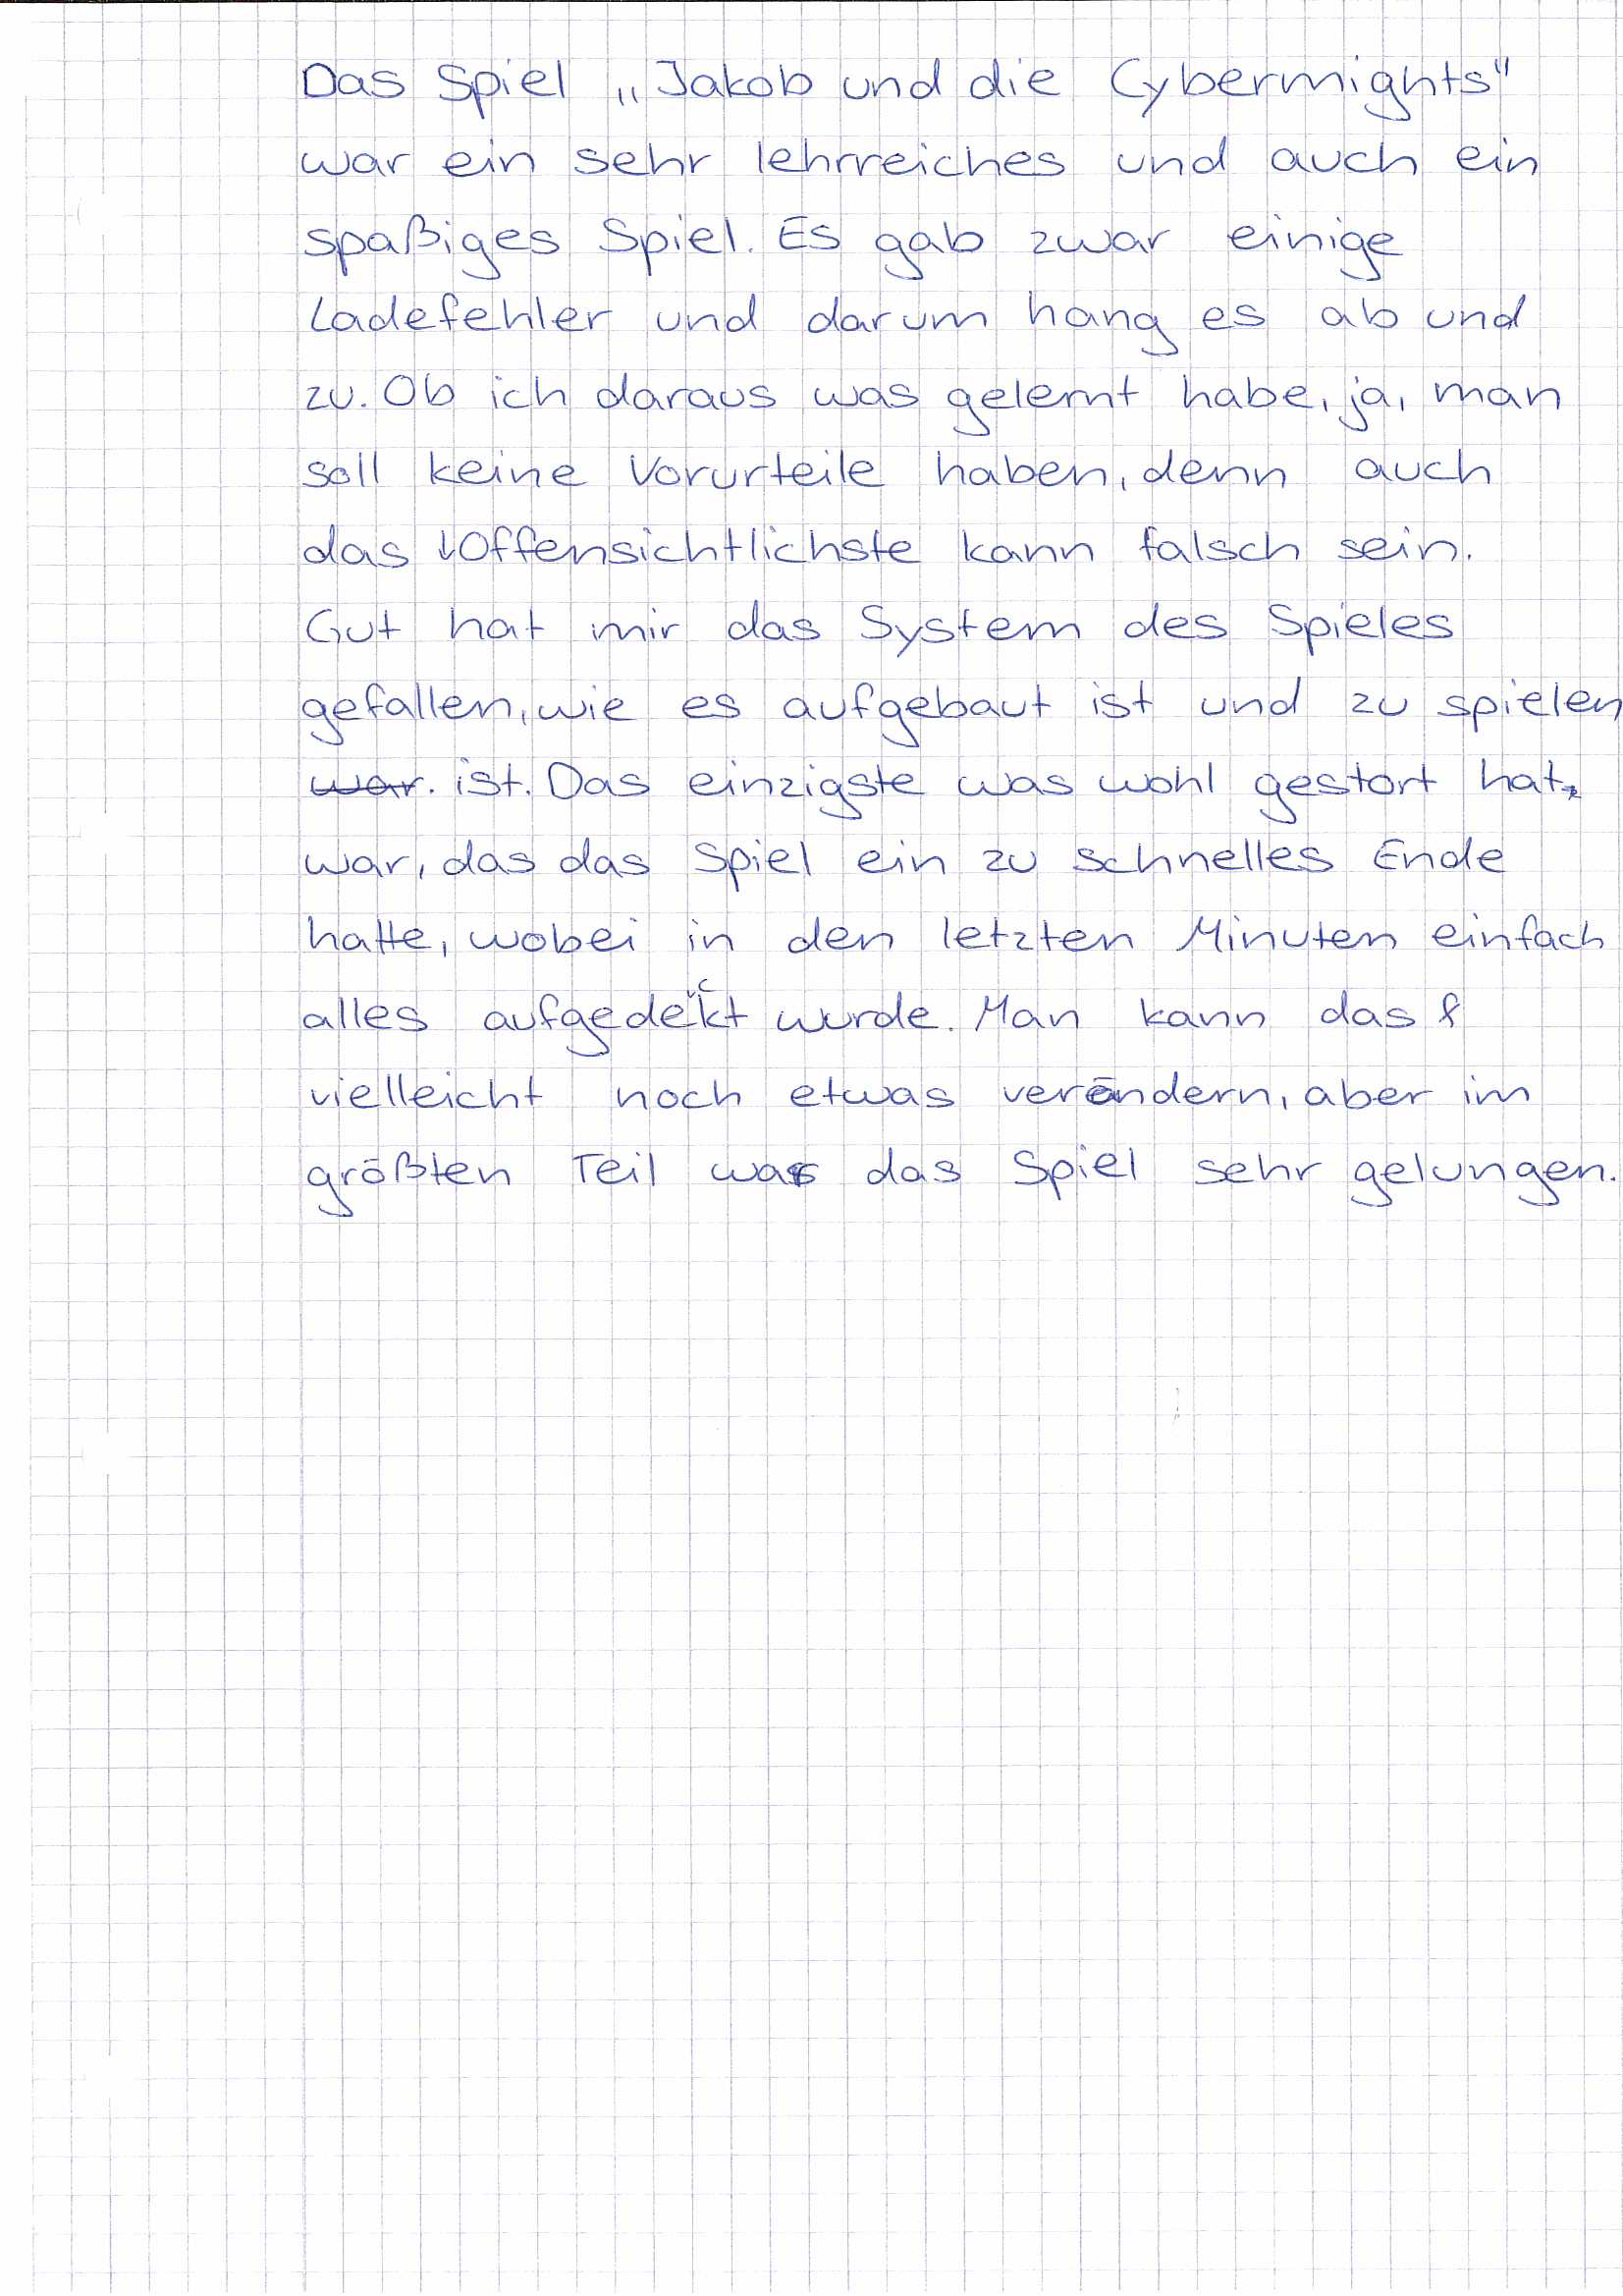 Das Spiel „Jakob und die Cybermights"
war ein sehr lehrreiches und auch ein
spaßiges Spiel. Es gab zwar einige
Ladefehler und darum hang es ab und
zu. Ob ich daraus was gelernt habe, ja, man
soll keine Vorurteile haben, denn auch
das Offensichtlichste kann falsch sein.
Gut hat mir das System des Spieles
gefallen, wie es aufgebaut ist und zu spielen
war. ist. Das einzigste was wohl gestört hat,
war, das das Spiel ein zu schnelles Ende
hatte, wobei in den letzten Minuten einfach
alles aufgedeckt wurde. Man kann das
vielleicht noch etwas verändern, aber im
größten Teil war das Spiel sehr gelungen.